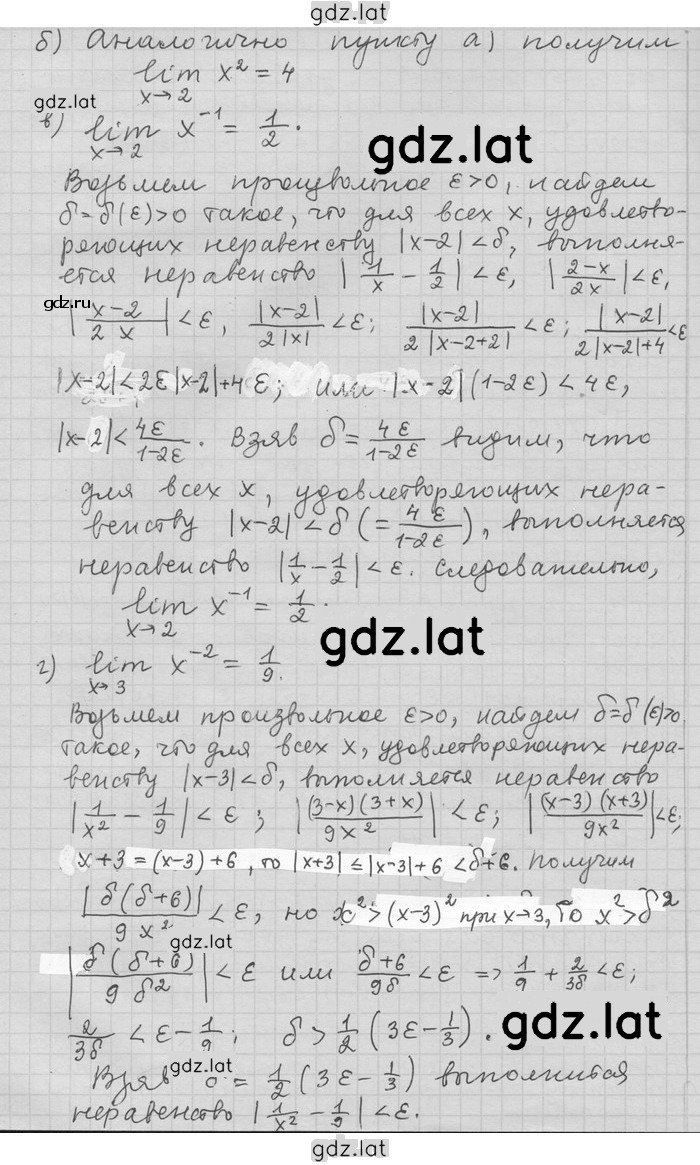 gdz.lat
б) Аналогично пункту а) получим
lim x² = 4
x→2
gdz.lat
в) lim x⁻¹ = 1/2.
x→2
gdz.lat
Возьмем произвольное ε>0, найдем
δ=δ(ε)>0 такое, что для всех x, удовлетво-
ряющих неравенству |x-2|<δ, выполня-
ется неравенство |1/x - 1/2| < ε, |(2-x)/(2x)| < ε,
gdz.ru
|(x-2)/(2x)| < ε, |x-2|/(2|x|) < ε; |x-2|/(2|x-2+2|) < ε; |x-2|/(2|x-2|+4) < ε
|x-2|<2ε|x-2|+4ε; или |x-2|(1-2ε) < 4ε,
|x-2| < 4ε/(1-2ε). Взяв δ = 4ε/(1-2ε) видим, что
для всех x, удовлетворяющих нера-
венству |x-2|<δ (= 4ε/(1-2ε)), выполняется
неравенство |1/x - 1/2| < ε. Следовательно,
lim x⁻¹ = 1/2.
x→2
gdz.lat
г) lim x⁻² = 1/9.
x→3
Возьмем произвольное ε>0, найдем δ=δ(ε)>0
такое, что для всех x, удовлетворяющих нера-
венству |x-3|<δ, выполняется неравенство
|1/x² - 1/9| < ε; |(3-x)(3+x)/(9x²)| < ε; |(x-3)(x+3)/(9x²)| < ε;
x+3=(x-3)+6, то |x+3| ≤ |x-3|+6 < δ+6. Получим
|δ(δ+6)/(9x²)| < ε, но x² > (x-3)² при x→3, то x² > δ²
gdz.lat
|δ(δ+6)/(9δ²)| < ε или (δ+6)/(9δ) < ε => 1/9 + 2/(3δ) < ε;
2/(3δ) < ε - 1/9; δ > 1/2 (3ε - 1/3).
gdz.lat
gdz.lat
Взяв δ = 1/2 (3ε - 1/3) выполнится
неравенство |1/x² - 1/9| < ε.
gdz.lat